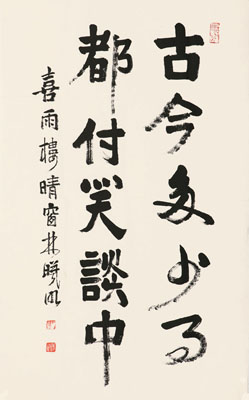 古今多少事
都付笑談中
喜雨樓晴窗林曦明